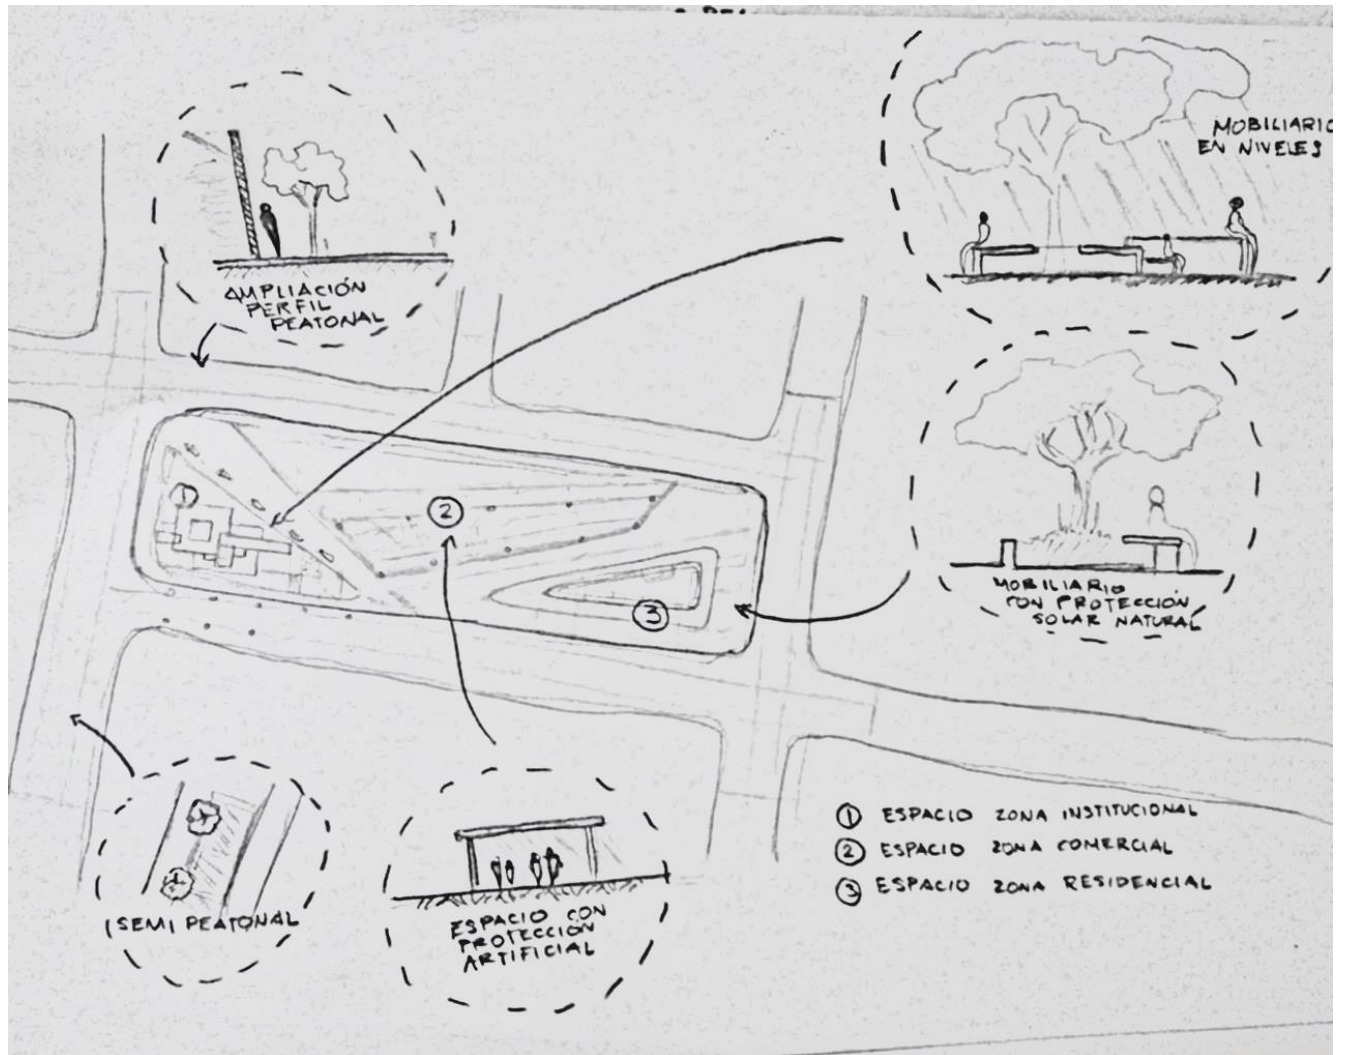 MOBILIARIO
EN NIVELES
AMPLIACIÓN
PERFIL
PEATONAL
1
2
3
MOBILIARIO
CON PROTECCIÓN
SOLAR NATURAL
(SEMI PEATONAL
ESPACIO CON
PROTECCIÓN
ARTIFICIAL
1 ESPACIO ZONA INSTITUCIONAL
2 ESPACIO ZONA COMERCIAL
3 ESPACIO ZONA RESIDENCIAL